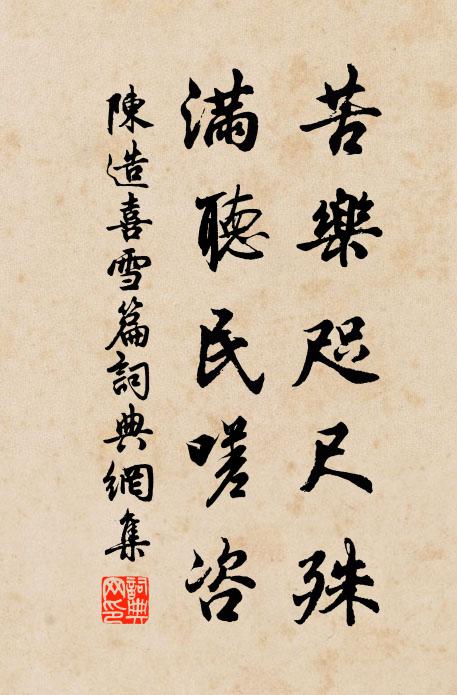 苦樂咫尺殊
滿聽民嗟咨
陳造喜雪篇詞典網集
詞典网印